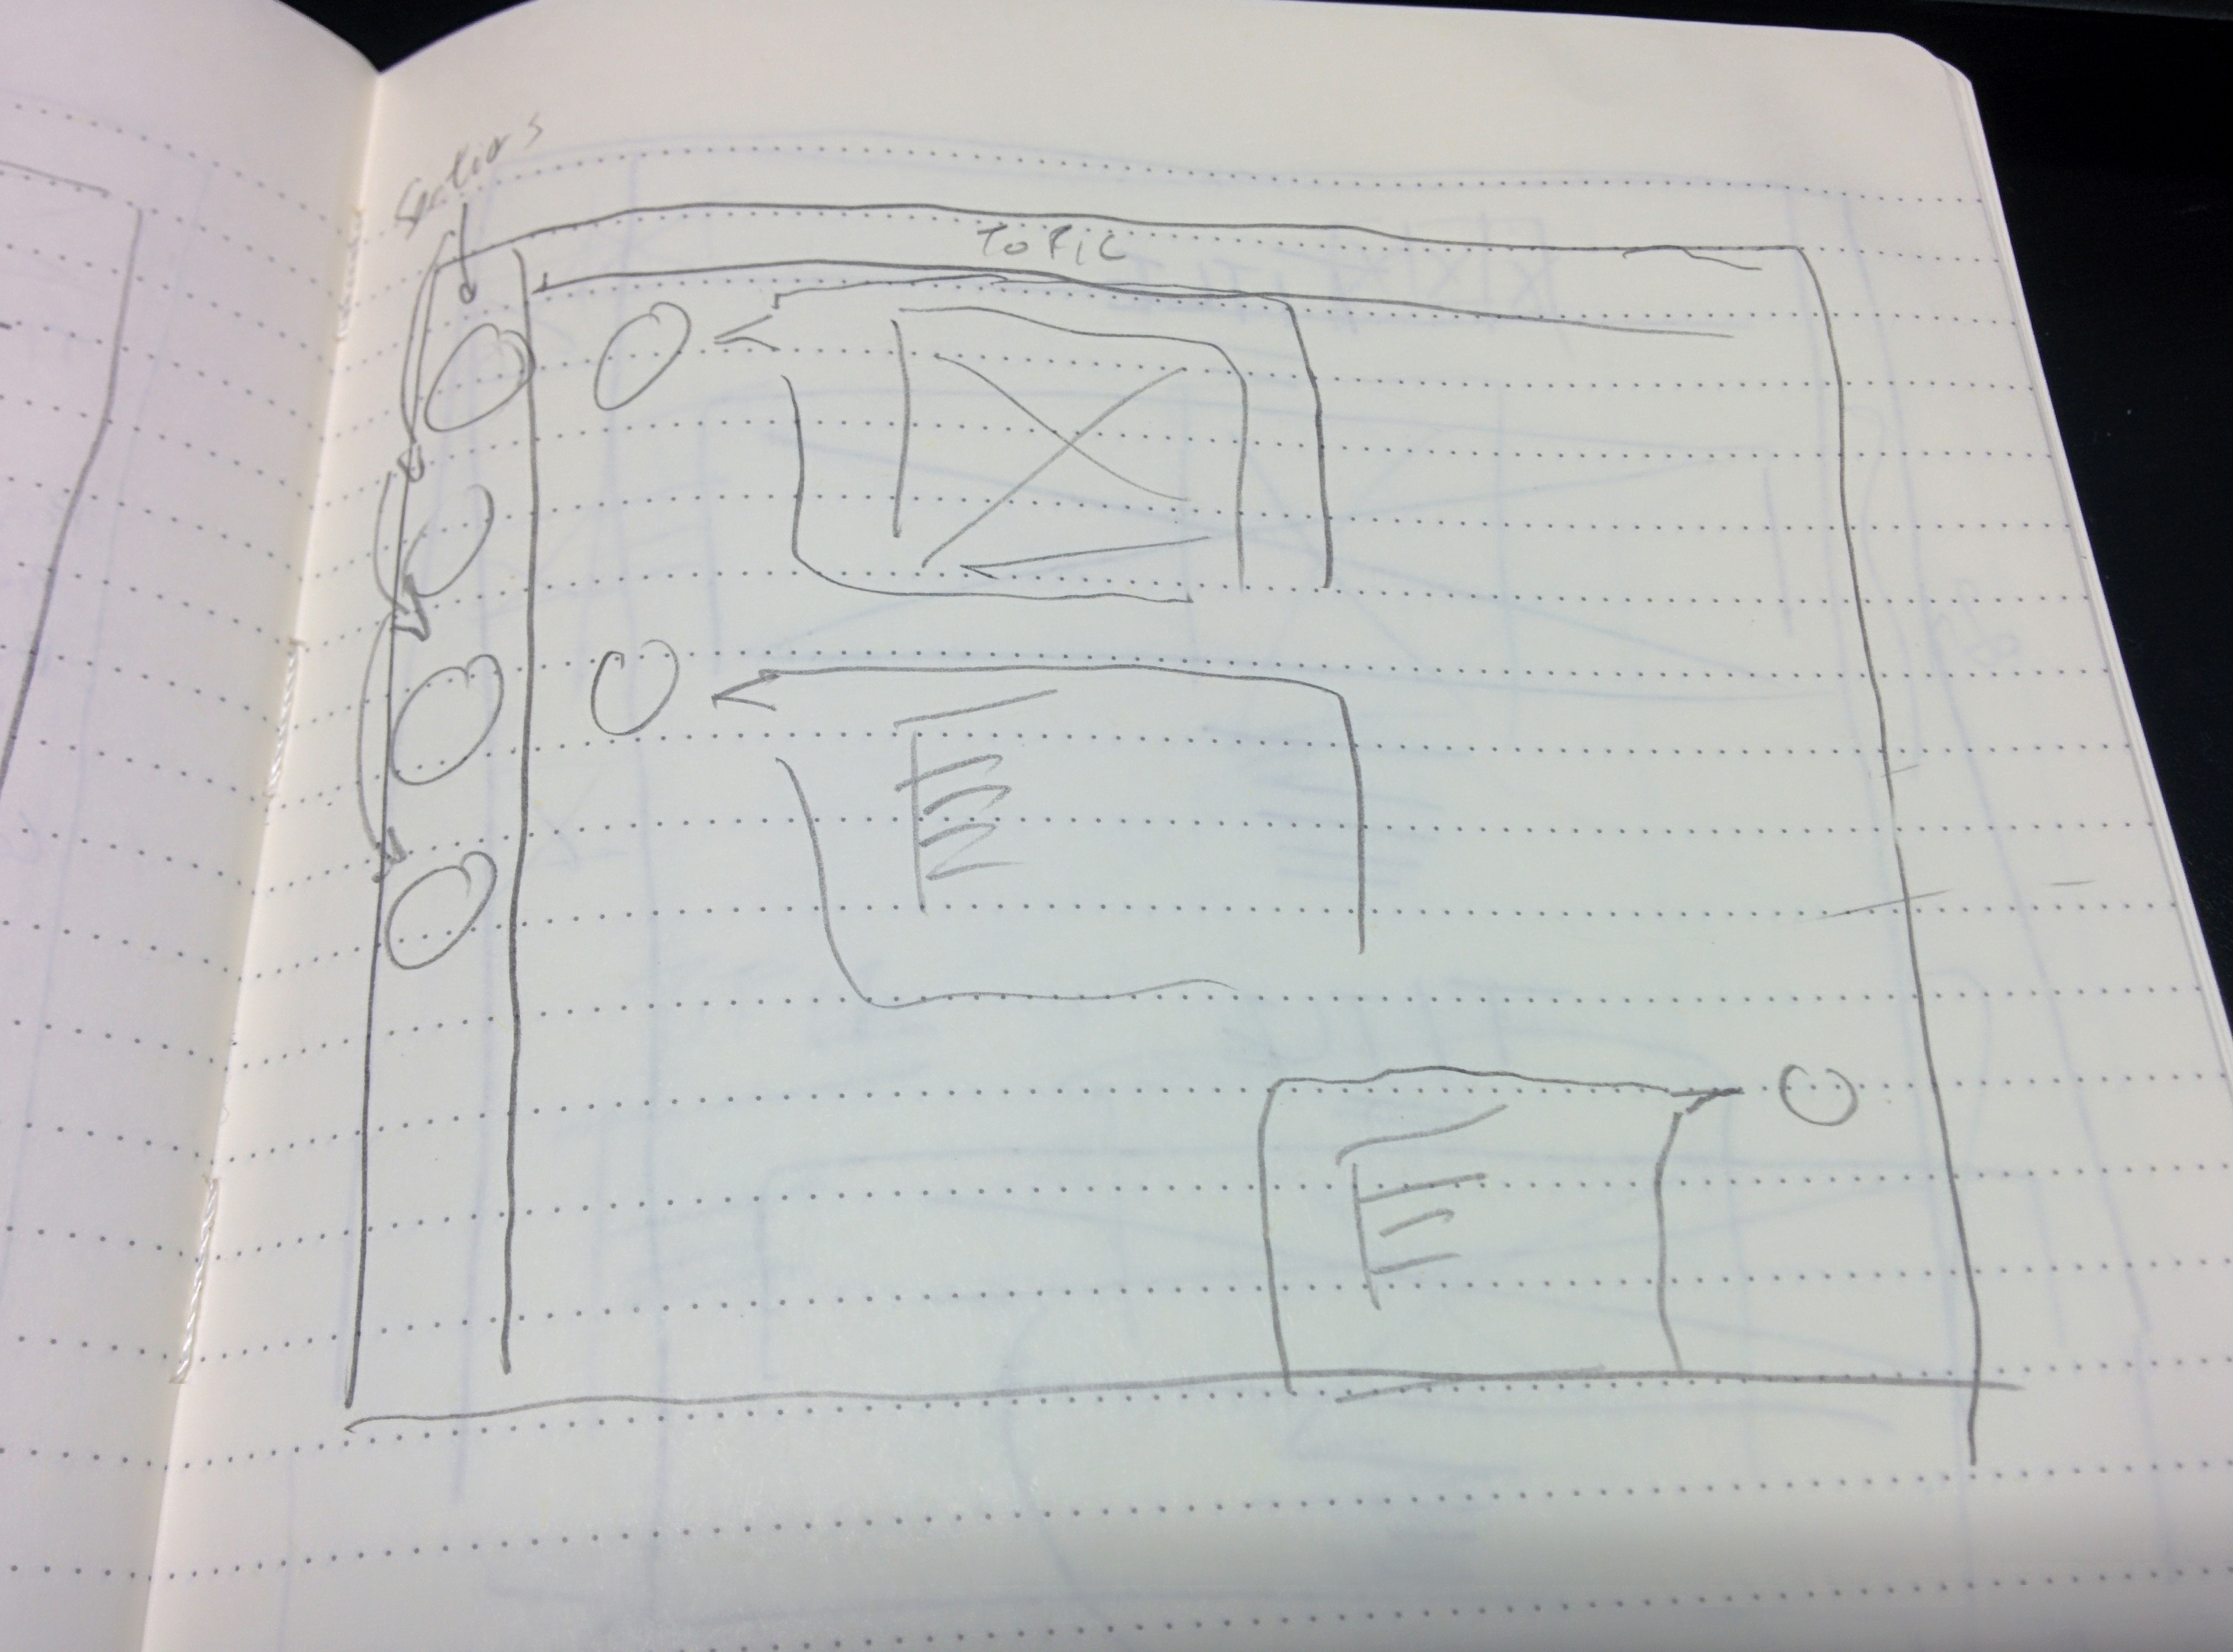 Sections
TOPIC